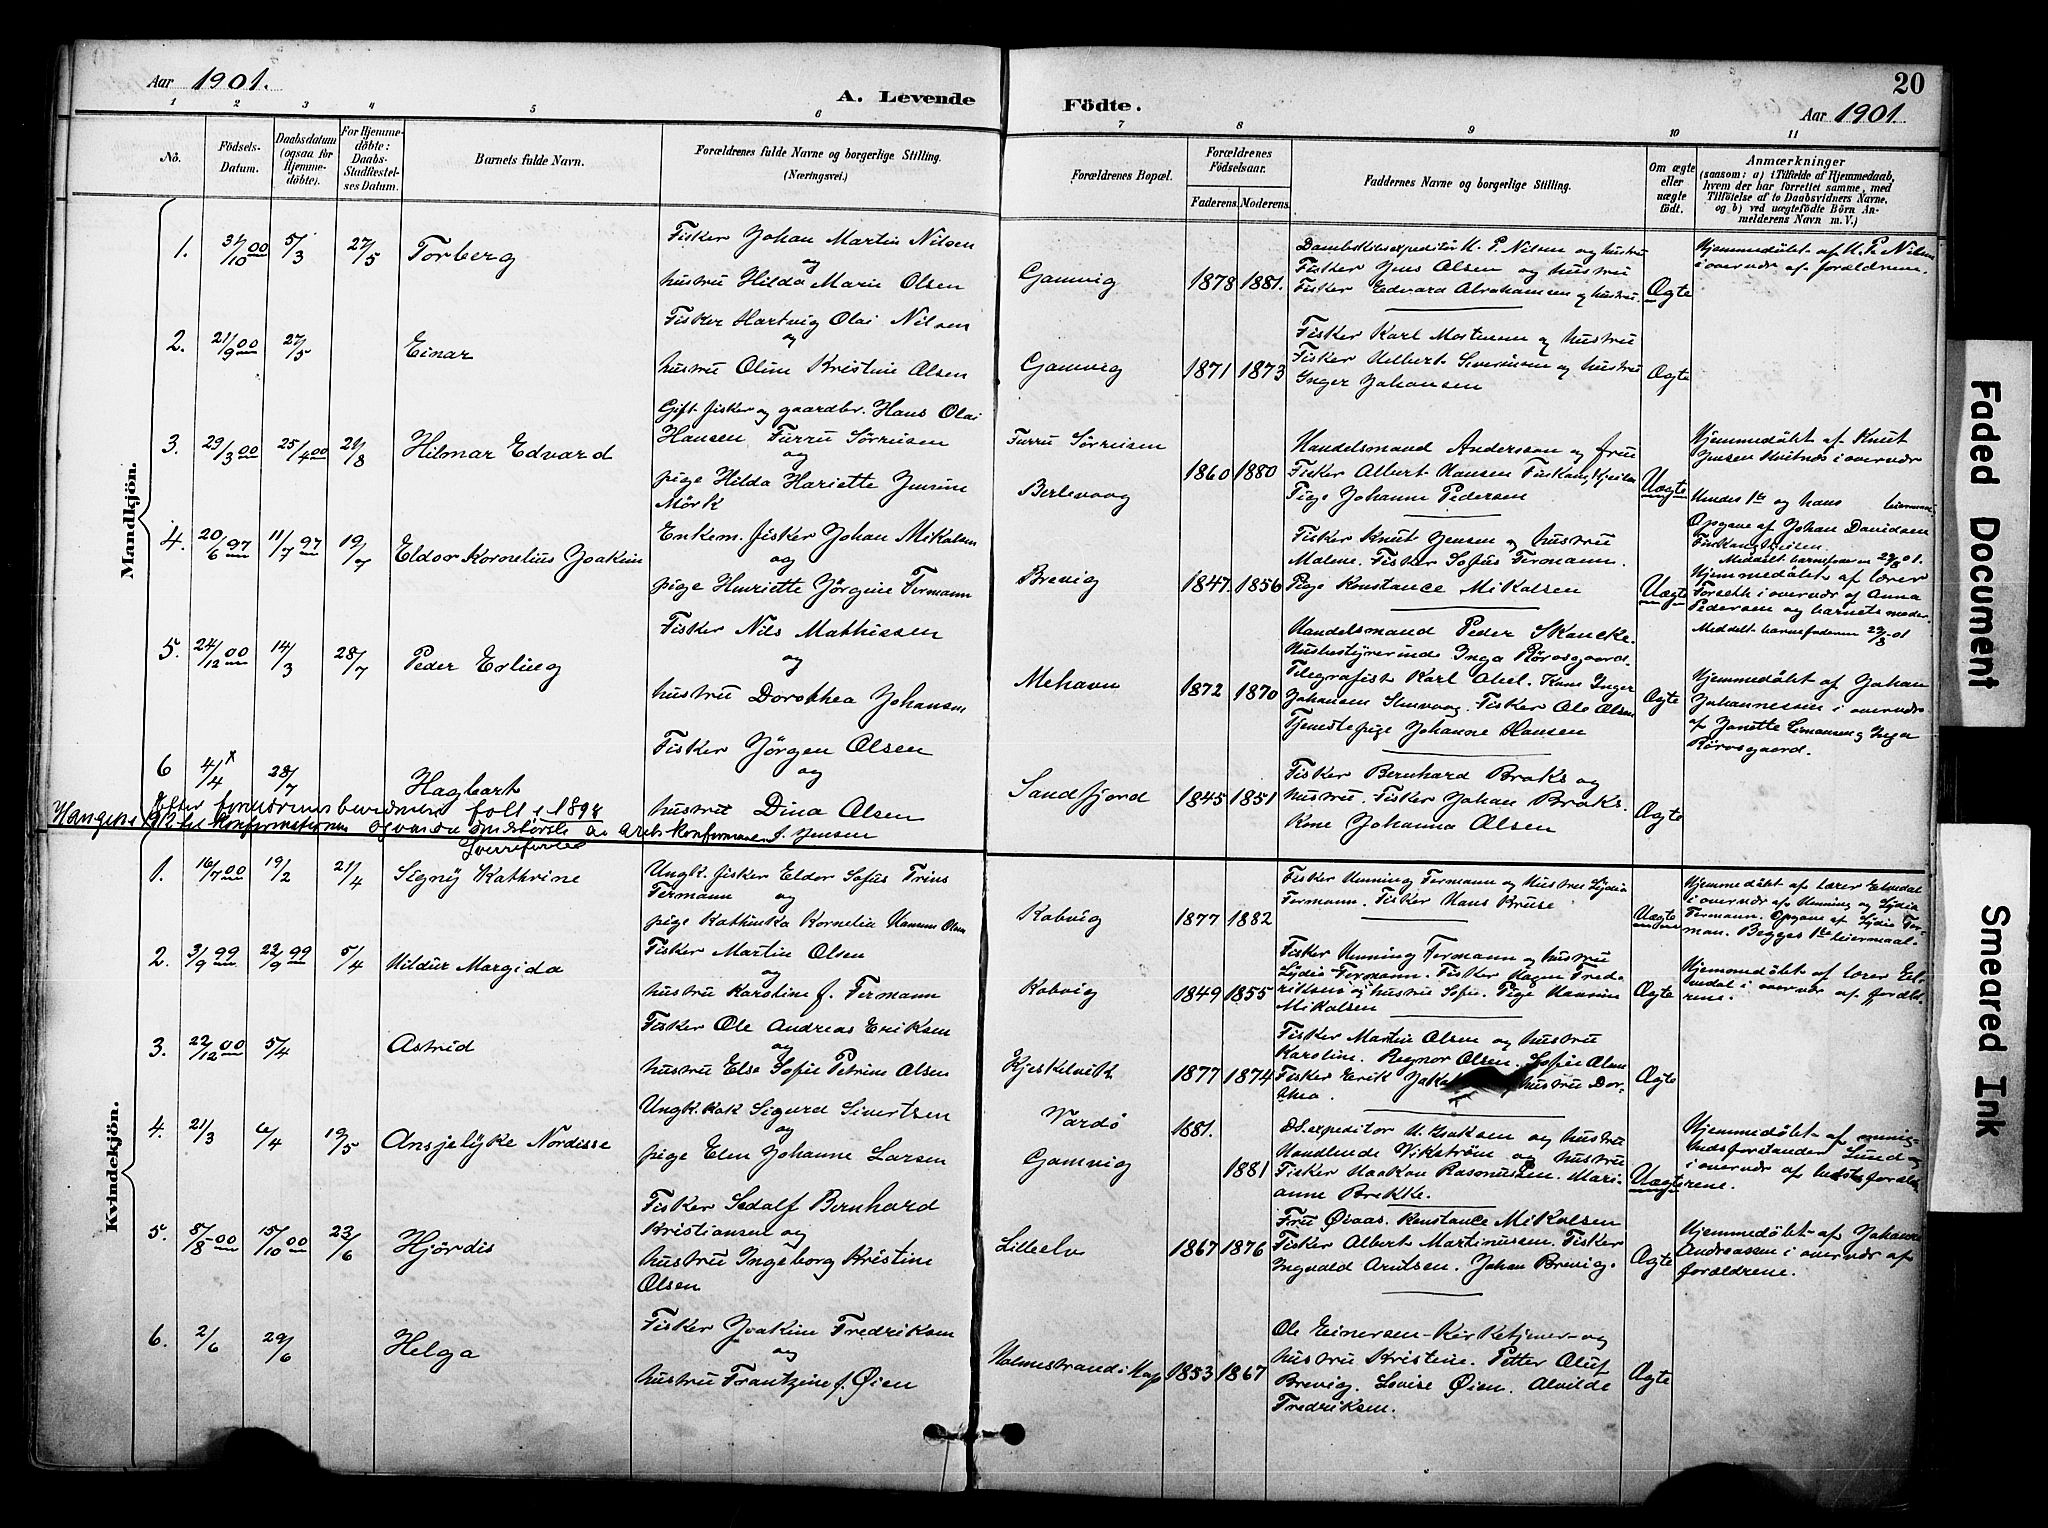 Aar 1901.
A. Levende Födte.
20
Aar 1901.
1 2 3 4 5 6 7 8 9 10 11
No.
Födsels-Datum.
Daabsdatum (ogsaa for Hjemme-döbte).
For Hjemme-döbte: Daabs-Stadfæstel-ses Datum.
Barnets fulde Navn.
Forældrenes fulde Navne og borgerlige Stilling. (Næringsvei.)
Forældrenes Bopæl.
Forældrenes Födselsaar.
Faderens. Moderens.
Faddernes Navne og borgerlige Stilling.
Om ægte eller uægte födt.
Anmærkninger
(saasom: a) i Tilfælde af Hjemmedaab, hvem der har forrettet samme, med Tilföielse af to Daabsvidners Navne, og b) ved uægtefödte Börn An-melderens Navn m. V.)
Mandkjön.
1. 31/10 00 5/3 27/5 Torberg
Fisker Johan Martin Nilsen
og
hustru Hilda Marie Olsen
Gamvig 1878 1881.
Dambskibsexpeditör H. P. Nilsen og hustru
Fisker Jens Olsen og hustru
Fisker Edvard Abrahamsen og hustru.
Ægte
Hjemmedöbt af H. P. Nilsen
i overvær af forældrene.
2. 21/9 00 27/5 Einar
Fisker Hartvig Olai Nilsen
og
hustru Oline Kristine Olsen
Gamvig 1871 1873
Fisker Karl Mortensen og hustru
Fisker Helbert Severinsen og hustru
Inger Johansen
Ægte
3. 29/3 00 25/4 00 21/8 Hilmar Edvard
Gift fisker og gaardbr. Hans Olai
Hansen Furru Sørreisen
og
pige Hilda Hariette Jensine
Mörk
Furru Sørreisen
Berlevaag
1860 1880
Handelsmand Anderssen og frue
Fisker Albert Hansen
Pige Johanne Pedersen
Uægte
Hjemmedöbt af Knut
Jensen Hvitnes i overvær
Hendes 1ste og hans leiermaal.
Opgave af Johan Davidsen
Meddelt barnefaderen 29/8 01.
4. 20/6 97 11/7 97 19/7 Eldor Kornelius Joakim
Enkem. fisker Johan Mikalsen
og
pige Henriette Jørgine Fermann
Brevig 1847. 1856
Fisker Knut Jensen og hustru
Malene. Fisker Sofus Fermann.
Pige Konstance Mikalsen
Uægte
Hjemmedöbt af lærer
Forseth i overvær af Anna
Pedersen og barnets moder.
Meddelt barnefaderen 29/8 01
5. 24/12 00 14/3 28/7 Peder Erling
Fisker Nils Mathissen
og
hustru Dorothea Johansen
Mehavn 1872 1870
Handelsmand Peder Skancke.
Husbestyrerinde Inga Rørosgaard.
Telegrafist Karl Abel. Kone Inger
Johansen Stenvaag. Fisker Ole Olsen
Tjenestepige Johanne Hansen
Ægte
Hjemmedöbt af Johan
Johannessen i overvær
af Janette Simonsen og Inga
Rörosgaard.
6 4/4 x 28/7 Hagbart
Fisker Jörgen Olsen
og
hustru Dina Olsen
Sandfjord 1845 1851
Fisker Bernhard Braks og
hustru. Fisker Johan Braks.
Kone Johanna Olsen
Ægte
Efter forældrenes bevidnelse født i 1898
konfirmationen J. Jensen
Kvindekjön.
1. 16/7 00 19/2 21/4 Signÿ Kathrine
Ungk. fisker Eldor Sofus Trins
Fermann og
pige Kathinka Kornelia Hansen Olsen
Kobvig 1877 1882
Fisker Henning Fermann og hustru Lÿdia
Fermann. Fisker Hans Kruse.
Uægte
Hjemmedöbt af lærer
i overvær af Henning og Lÿdia
Fermann. Opgave af Lÿdia Fer-
man. Begges 1ste leiermaal.
2. 3/9 99 22/9 99 5/4 Hildur Margida
Fisker Martin Olsen
og
hustru Karoline f. Fermann
Kobvig 1849 1855
Fisker Henning Fermann og hustru
Lÿdia Fermann. Fisker Hagen Fred-
riksen og hustru Sofie. Pige Hansine
Mikalsen
Ægte
Hjemmedöbt af lærer
i overvær af foræld-
rene.
3. 22/12 00 5/4 Astrid
Fisker Ole Andreas Eriksen
og
hustru Else Sofie Petrine Olsen
Kjeskelvik 1877 1874
Fisker Martin Olsen og hustru
Karoline. Regnor Olsen. Sofie Olsen
Fisker Erik hustru Dor-
thea.
Ægte
4. 21/3 6/4 19/5 Ansjelÿke Nordisse
Ungk. kok Sigurd Sivertsen
og
pige Elen Johanne Larsen
Vardø 1881.
Gamvig 1881
D.S. expeditör H. Isaksen og hustru
Handlende Vikstrøm og hustru
Fisker Haakon Rasmussen. Mari-
anne Brekke.
Uægte
Hjemmedöbt af menig-
hedsforstander Lund
i overvær af bedsteforæld-
rene.
5. 8/8 00 15/10 00 23/6 Hjördis
Fisker Sedalf Bernhard
Kristiansen og
hustru Ingeborg Kristine
Olsen
Lilleelv 1867 1876
Fru Øiaas. Konstance Mikalsen
Fisker Albert Martinussen. Fisker
Ingvald Arntsen. Johan Brevig.
Ægte
Hjemmedöbt af Johannes
Andreassen i overvær af
forældrene.
6. 2/6 29/6 Helga
Fisker Joakim Fredriksen
og
hustru Frantzine f. Øien
1853 1867
Ole Einersen - Kirketjener - og
hustru Kristine. Petter Oluf
Brevig. Lovise Øien. Alvilde
Fredriksen.
Ægte
Faded Document
Smeared Ink